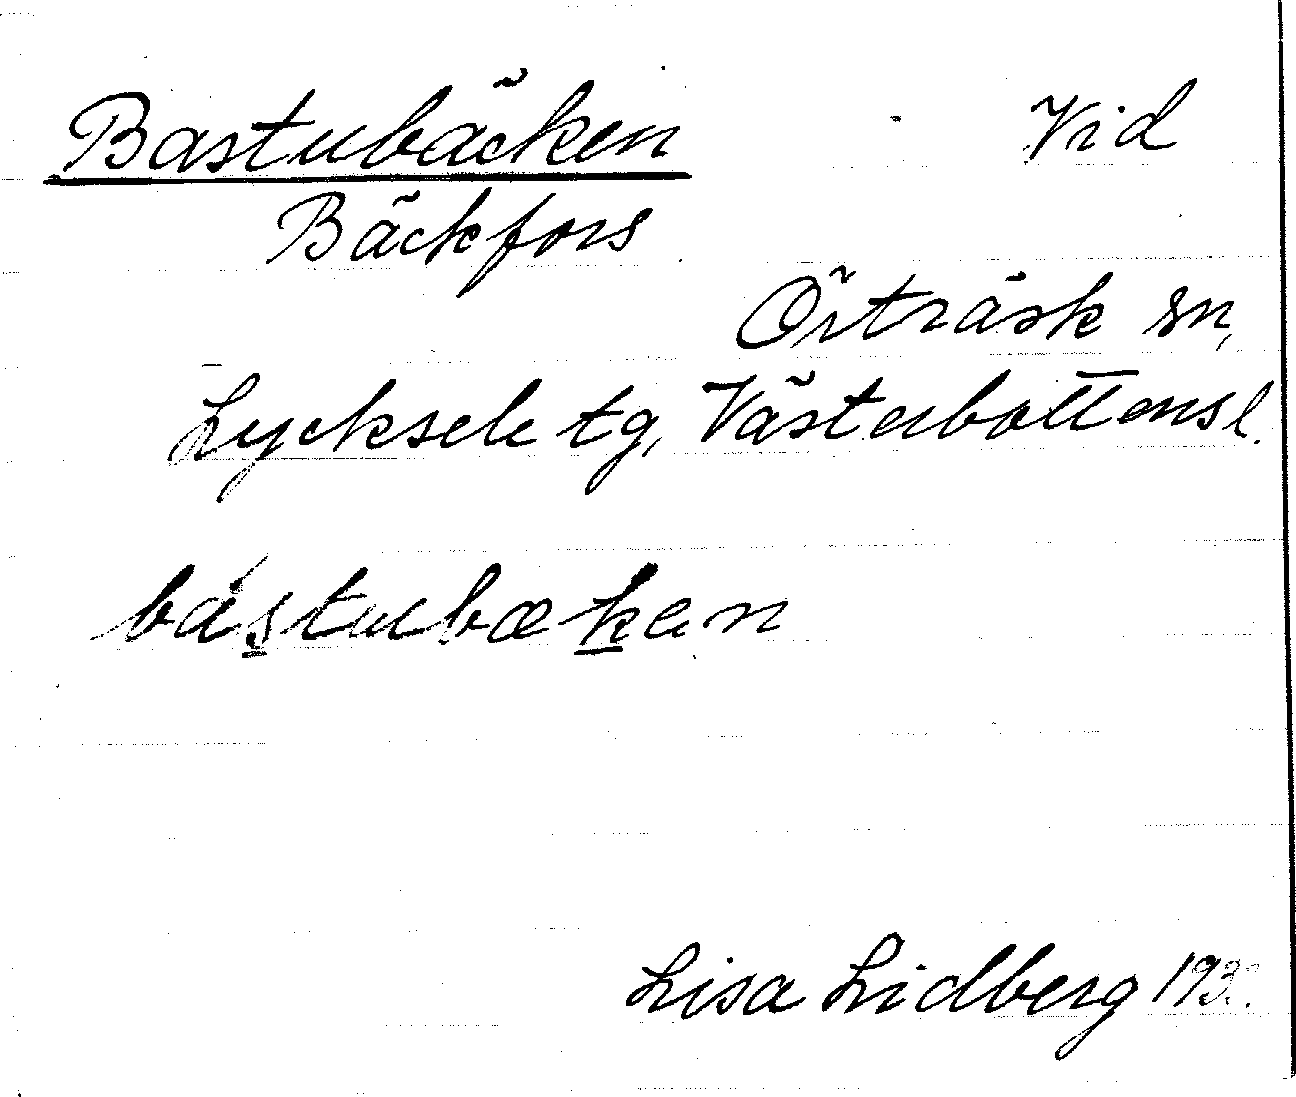 Bastubäcken Vid
Bäckfors
Örträsk sn,
Lycksele tg, Västerbottensl.
bástubæken
Lisa Lidberg